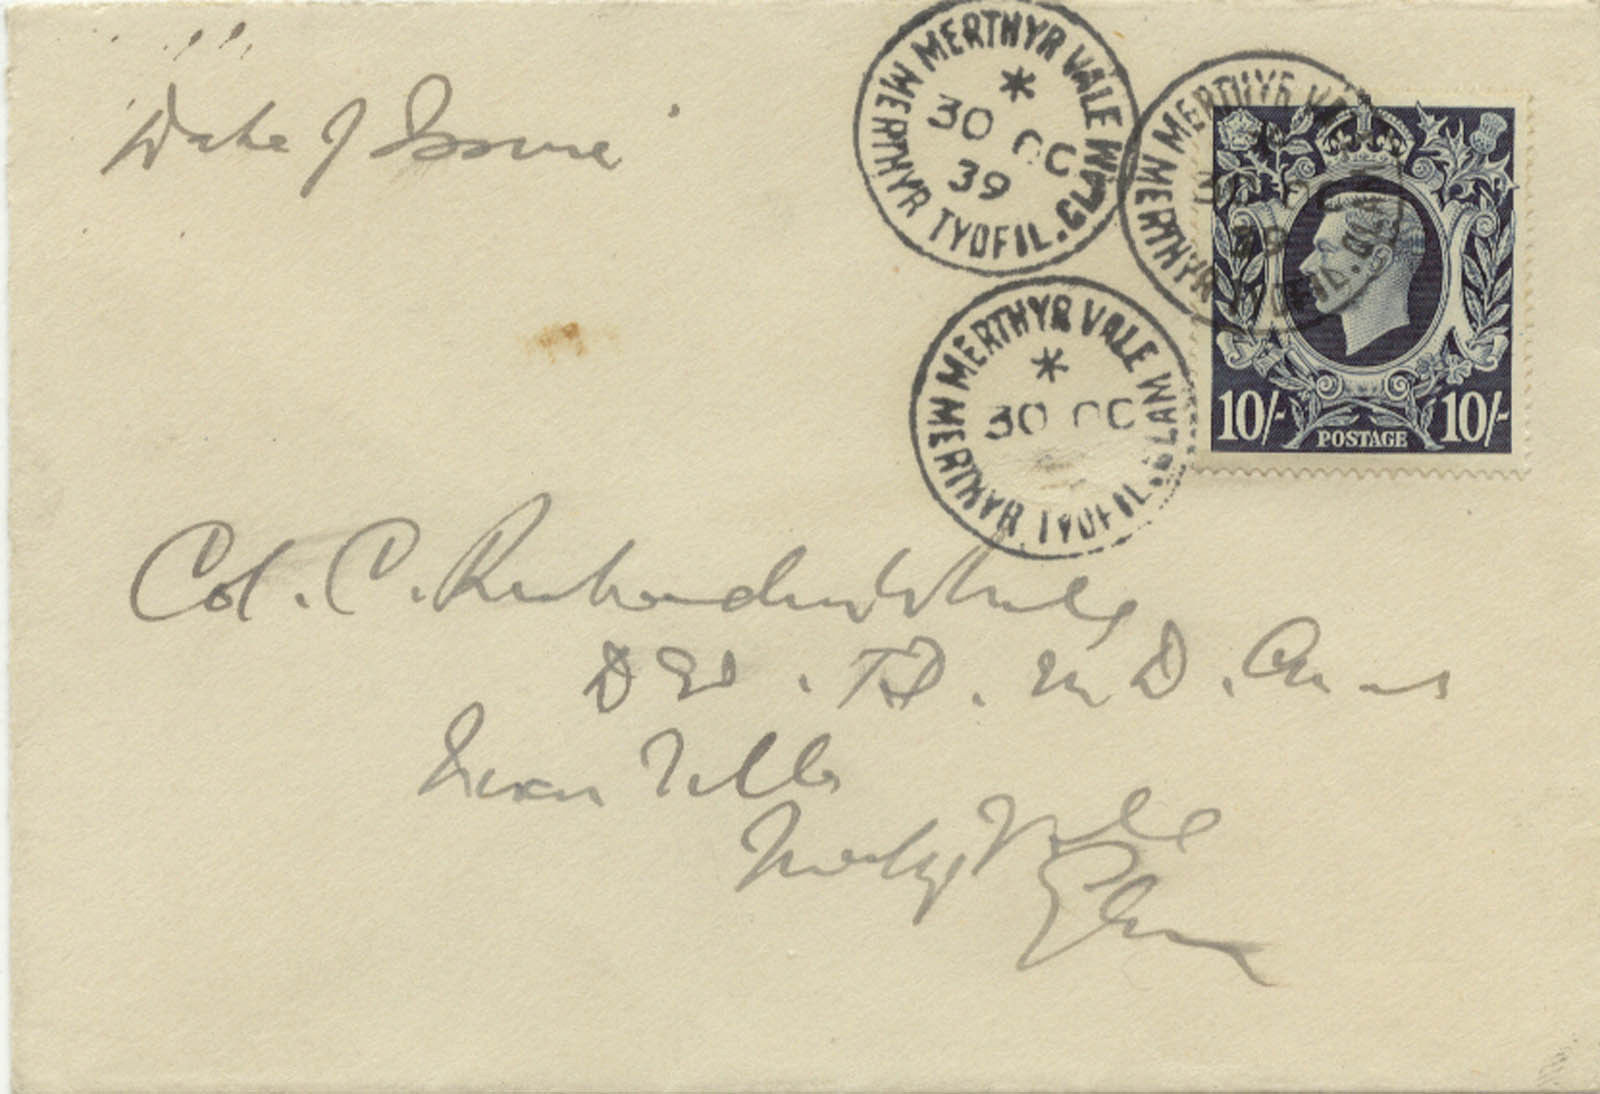 'Date of Issue'
MERTHYR VALE
MERTHYR TYDFIL. GLAM
*
30 OC
39
MERTHYR VALE
MERTHYR TYDFIL. GLAM
*
30 OC
MERTHYR VALE
MERTHYR TYDFIL. GLAM
39
10/- 10/-
POSTAGE
Col. C. Richardson White
T.D. M D.
Merthyr Vale
Glam